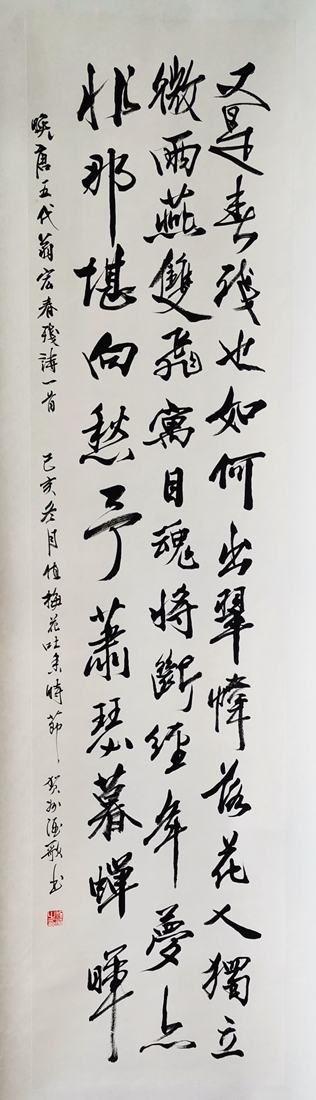 又是春殘也如何出翠幃落花人獨立
微雨燕雙飛寓目魂將斷經年夢亦
非那堪向愁夕蕭瑟暮蟬暉
晚唐五代翁宏春殘詩一首 己亥冬月值梅花吐香時節 賀州 歌书